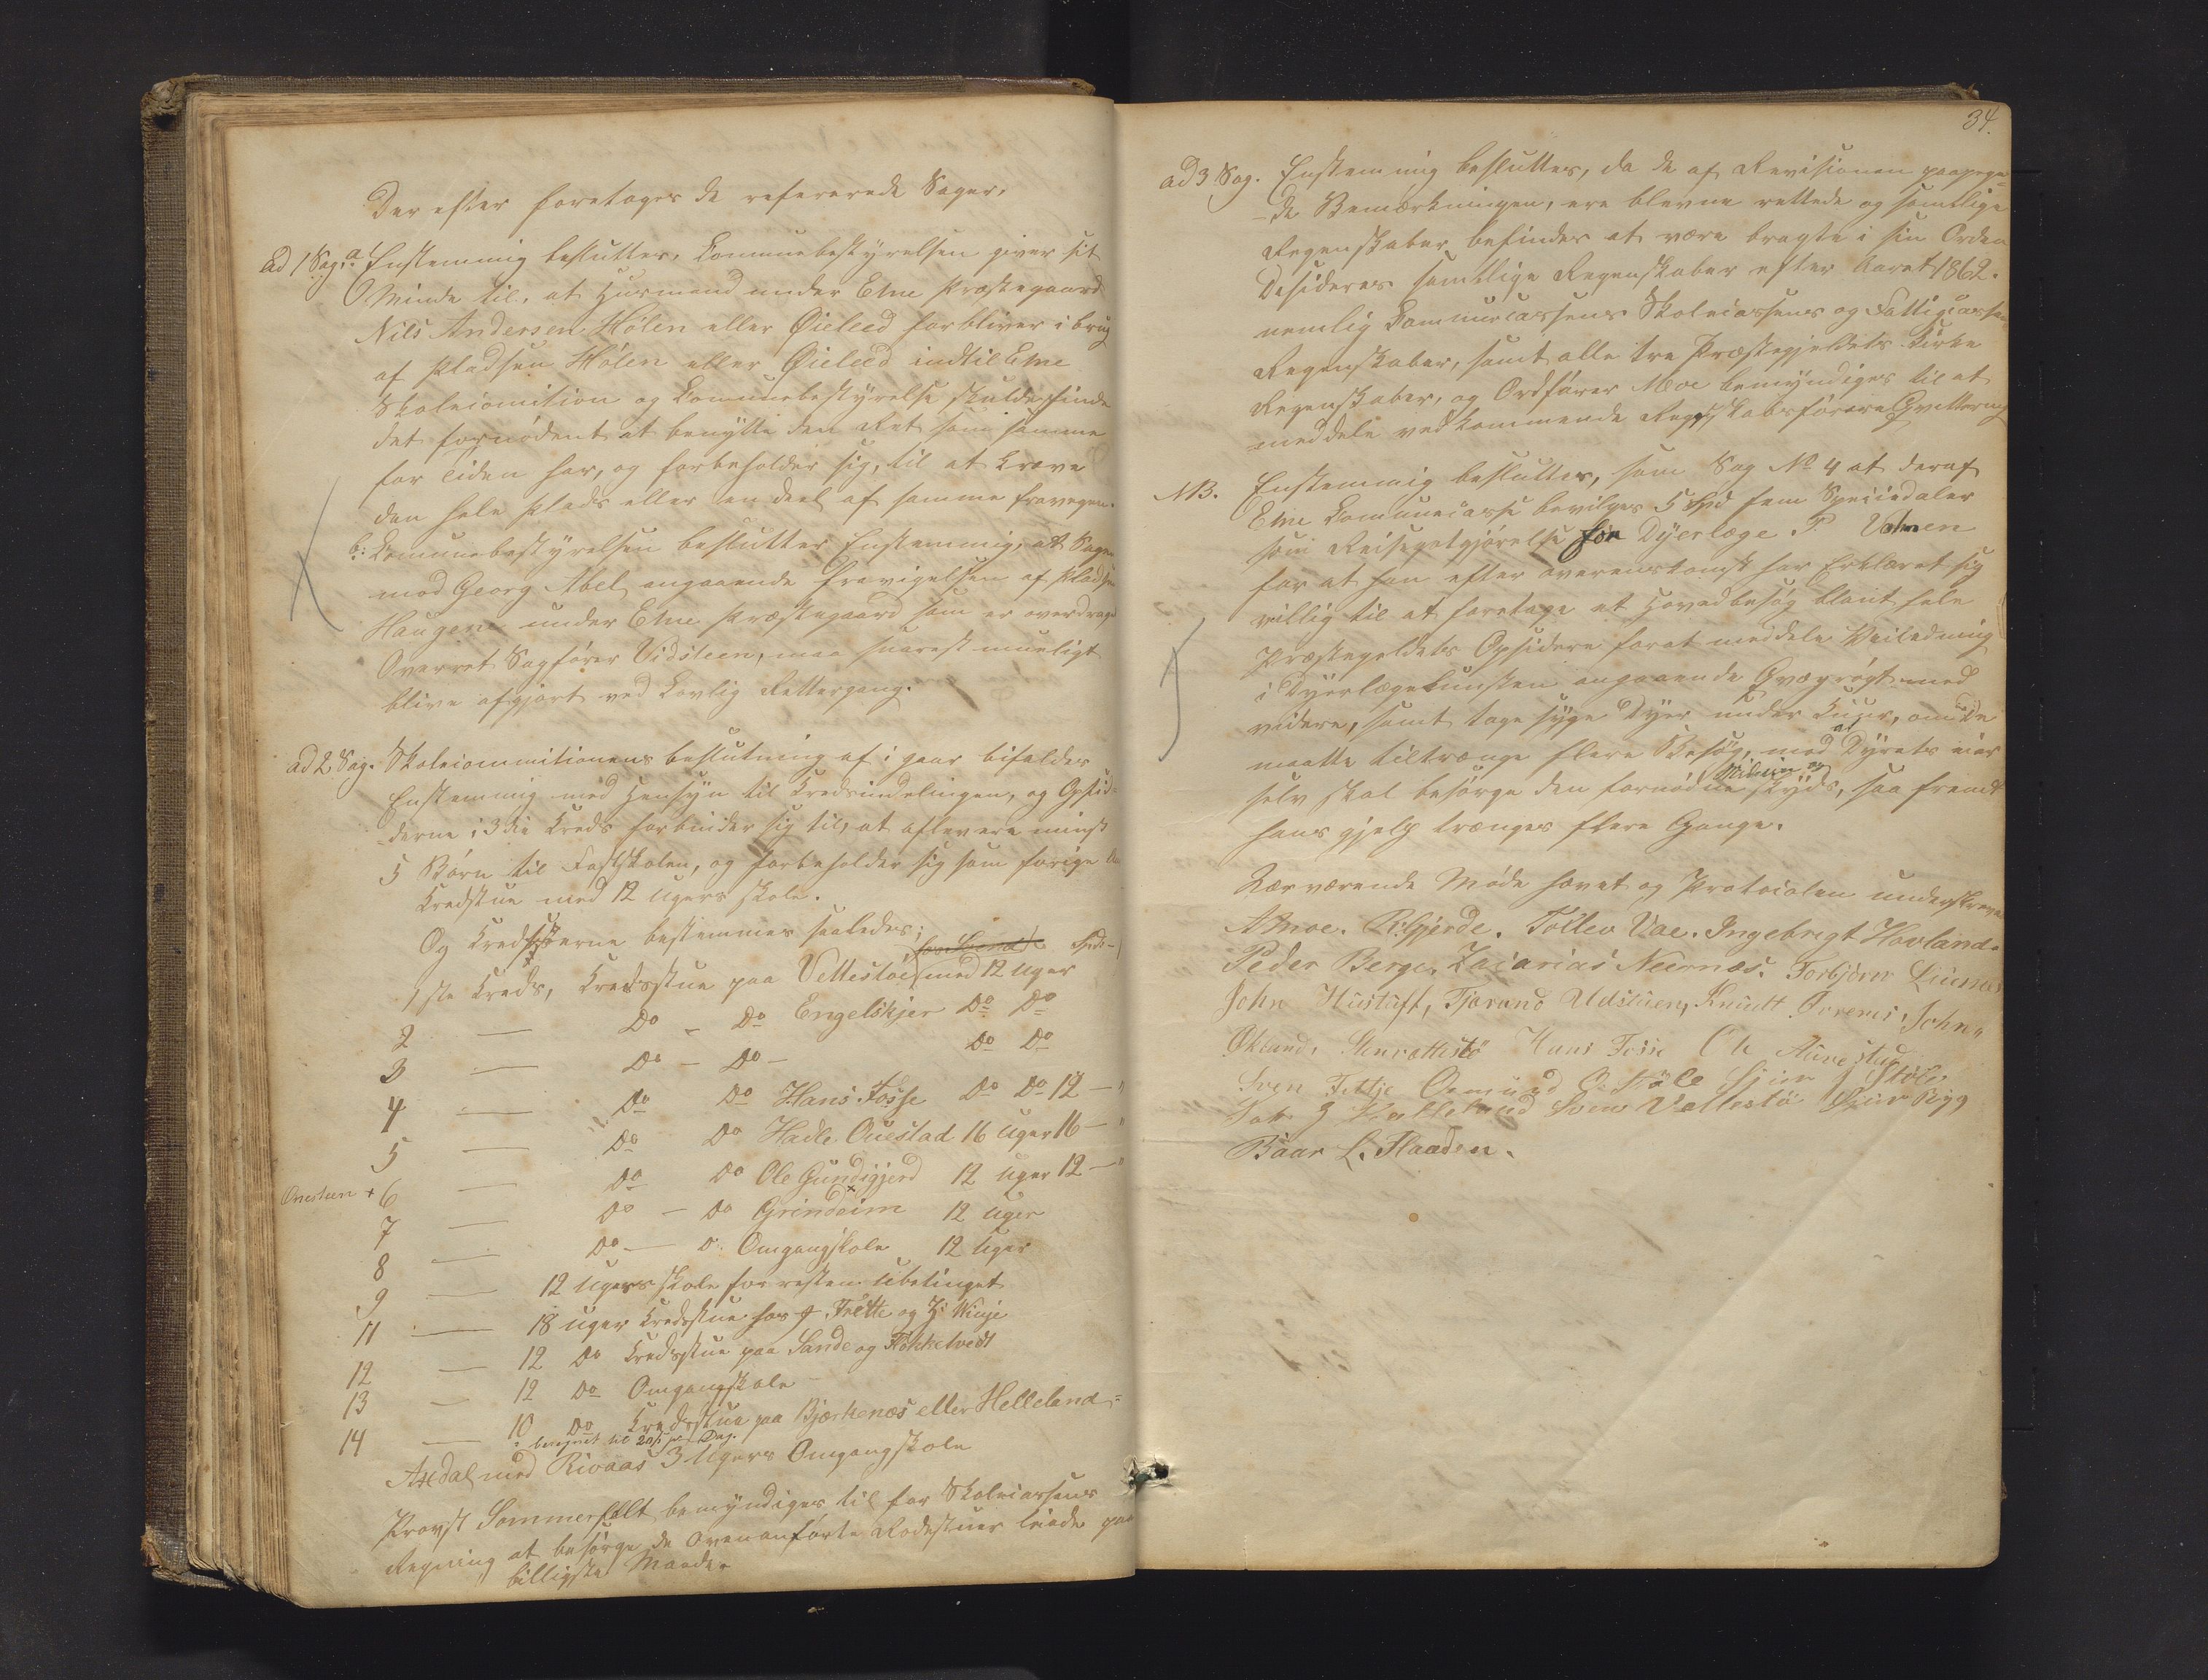 Der efter foretoges de refererede Sager.
Ad 1 Sag. a Enstemmig besluttes, Communebestyrelsen giver sit
Minde til, at Husmand under Etne Præstegaard
Nils Andersen Hølen eller Øieleed forbliver i brug
af Pladsen Hølen eller Øieleed indtil Etne
Skolecomition og Comunebestyrelse skulde finde
det fornødent at benytte den Ret som samme
for tiden har, og forbeholder sig, til at kræve
den hele Plads eller en deel af samme fravegen.
b: Comunebestyrelsen beslutter Enstemmig, at Sagen
mod Georg Abel angaaende fravigelsen af Pladsen
Haugen under Etne Præstegaard som er overdraget
Overret Sagfører Vidsteen, maa snarest mueligt
blive afgjort ved Lovlig Rettergang.
ad 2 Sag. Skolecommitionens beslutning af i gaar bifaldes
Enstemmig med Hensyn til Kredsindelingen, og Opsid-
derne i 3die Kreds forbinder sig til, at aflevere minst
5 Børn til Fastskolen, og forbeholder sig som forige
Kredstue med 12 Ugers skole.
Og Kredsstuerne bestemmes saaledes;
1ste Kreds, Kredsstue paa Vettestøe med 12 Uger
2 — Do - Do Engelskjer Do Do
3 — Do — Do — Do Do
4 — Do Do Hans Fosse Do Do 12 — "
5 — Do Do Hadle Ouestad 16 Uger 16 — "
Onesteen + 6 — Do Do Ole Gundigjerd 12 Uger 12 — "
7 — Do — Do Grindeim 12 Uger
8 — Do — D: Omgangskole 12 Uger
9 — 12 Ugers skole for resten Ubetinget
11 — 18 Uger Kredsstue hos J. Frette og H: Winje
12 — 12 Do Kredsstue paa Sande og Flokketvedt
13 — 12 Do Omgangskole
14 — 10 Do Kredsstue paa Bjerkenæs eller Helleland
beregnet til 20 s pr Dag.
Axdal med Rivaas 3 Ugers Omgangskole
Provst Sommerfelt bemyndiges til for Skolecassens
Regning at besørge de Ovenanførte Rodestuer leiede paa
billigste Maade.
34.
ad 3 Sag. Enstemmig besluttes, da de af Revisionen paapege-
de Bemærkninger, ere blevne rettede og samtlige
Regenskaber befindes at være bragte i sin Orden
Desideres samtlige Regenskaber efter Aaret 1862.
nemlig Communecassens Skolecassens og Fattigcassens
Regenskaber, samt alle tre Præstegjeldets Kirke
Regenskaber, og Ordfører Moe bemyndiges til at
meddele vedkommende Regnskabsførere Qvittering
NB. Enstemmig besluttes, som Sag No 4 at deraf
Etne Communecasse bevilges 5 Spd fem Speciedaler
som Reisegotgjørelse for Dyerlæge P. Valen
for at han efter overenskomst har Erklæret sig
villig til at foretage et Hovedbesøg blant hele
Præstegieldets Opsiddere forat meddele Veiledning
i Dyerlægekunsten angaaende Qvægrøgt med
videre, samt tage syge Dyer under Kuur, om De
maatte tiltrænge flere Besøg, mod at Dyrets eier
selv skal besørge den fornødne Midicin og skyds, saa fremt
hans hjelp trænges flere Gange.
Nærværende Møde hævet og Protocolen underskreven
A Moe. R. Gjerde. Tollev Vae. Ingebrigt Hovland.
Peder Berge, Zacarias Neernæs. Torbjørn Lunnes
John Hustuft, Tjerand Udstuen, Knudt John
Økland, Sten Vettestø Hans Fosse Ole Aurestad
Sven Fettje Omund O. Støle Sjur Støle
J Helleland Sven Vettestø Sjur Rygg
Baar L. Flaaden.